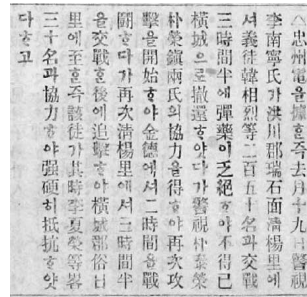 忠州電을據ᄒᆞᆫ즉去月十九日警視
李南寧氏가洪川郡瑞石面淸楊里에
셔義徒韓相烈等二百五十名과交戰
三時間半에彈藥이乏絶ᄒᆞ야不得已
橫城으로撤還ᄒᆞ얏다가警視朴
朴榮鎭兩氏의協力을得ᄒᆞ야再次攻
擊을開始ᄒᆞ야金德에셔二時間을戰
鬪ᄒᆞ다가再次淸楊里에셔三時間半
을交戰ᄒᆞᆫ後에追擊ᄒᆞ야橫城郡俗日
里에至ᄒᆞᆫ즉該徒가其時至夏榮等
三十名과協力ᄒᆞ야强硬히抵抗ᄒᆞ얏
다ᄒᆞ고